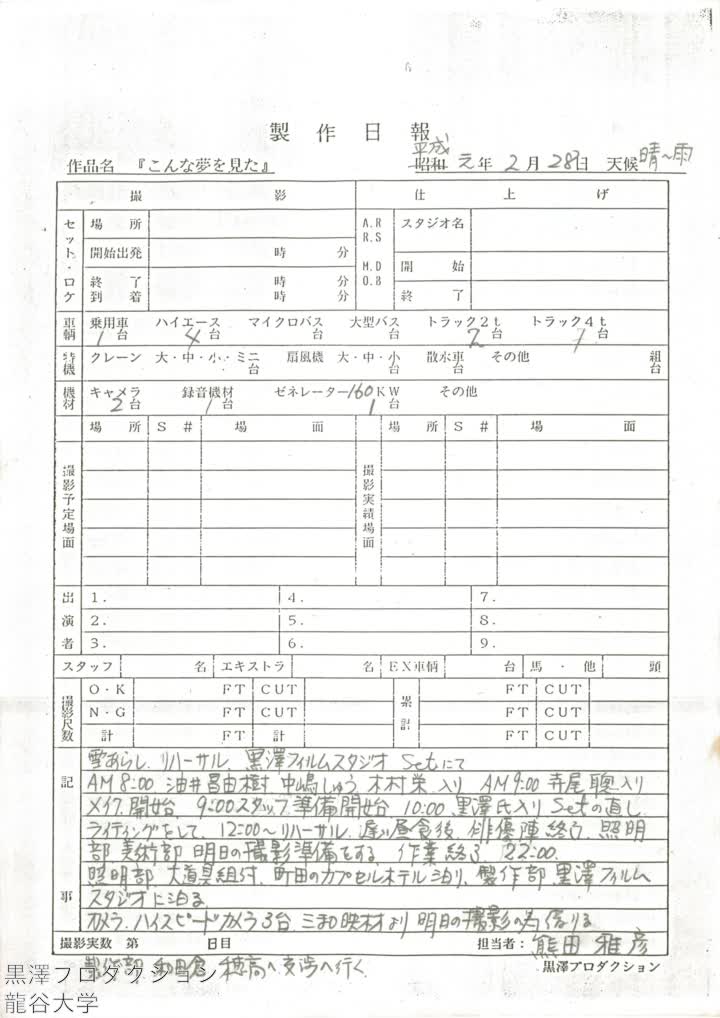 製作日報
作品名 『こんな夢を見た』 平成 昭和 元年 2月 28日 天候 晴〜雨
撮影 仕上げ
セット・ロケ 場所 A.R R.S スタジオ名
開始出発 時 分 M.D O.B 開始
終了 時 分 終了
到着 時 分
車輌 乗用車 1台 ハイエース 4台 マイクロバス 台 大型バス 台 トラック2t 2台 トラック4t 1台
特機 クレーン 大・中・小・ミニ 台 扇風機 大・中・小 台 散水車 台 その他 組 台
機材 キャメラ 2台 録音機材 1台 ゼネレーター 160KW 1台 その他
場所 S# 場面 場所 S# 場面
撮影予定場面 撮影実績場面
出演者 1. 4. 7.
2. 5. 8.
3. 6. 9.
スタッフ 名 エキストラ 名 EX車輌 台 馬・他 頭
撮影尺数 O・K FT CUT 累計 FT CUT
N・G FT CUT FT CUT
計 FT 計 FT CUT
記事
雪あらし、リハーサル、黒澤フィルムスタジオ Setにて
AM8:00 油井昌由樹 中嶋しゅう 木村栄 入り AM9:00 寺尾聰入り
メイク開始、9:00スタッフ準備開始 10:00 黒澤氏入り Setの直し
ライティングをして、12:00〜リハーサル、遅い昼食後、俳優陣終了、照明
部、美術部 明日の撮影準備をする、作業終了 22:00.
照明部、大道具組付、町田のカプセルホテル泊り、製作部 黒澤フィルム
スタジオに泊る
カメラ、ハイスピードカメラ3台、三和映材より 明日の撮影の為借りる
撮影実数 第 日目 担当者: 熊田雅彦
製作部 和田倉 穂高へ交渉へ行く
黒澤プロダクション
黒澤プロダクション
龍谷大学